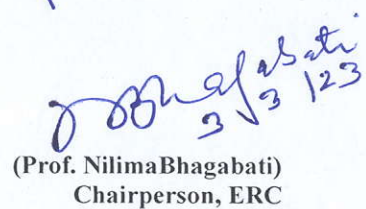 NBhagabati
3/3/23
(Prof. NilimaBhagabati)
Chairperson, ERC